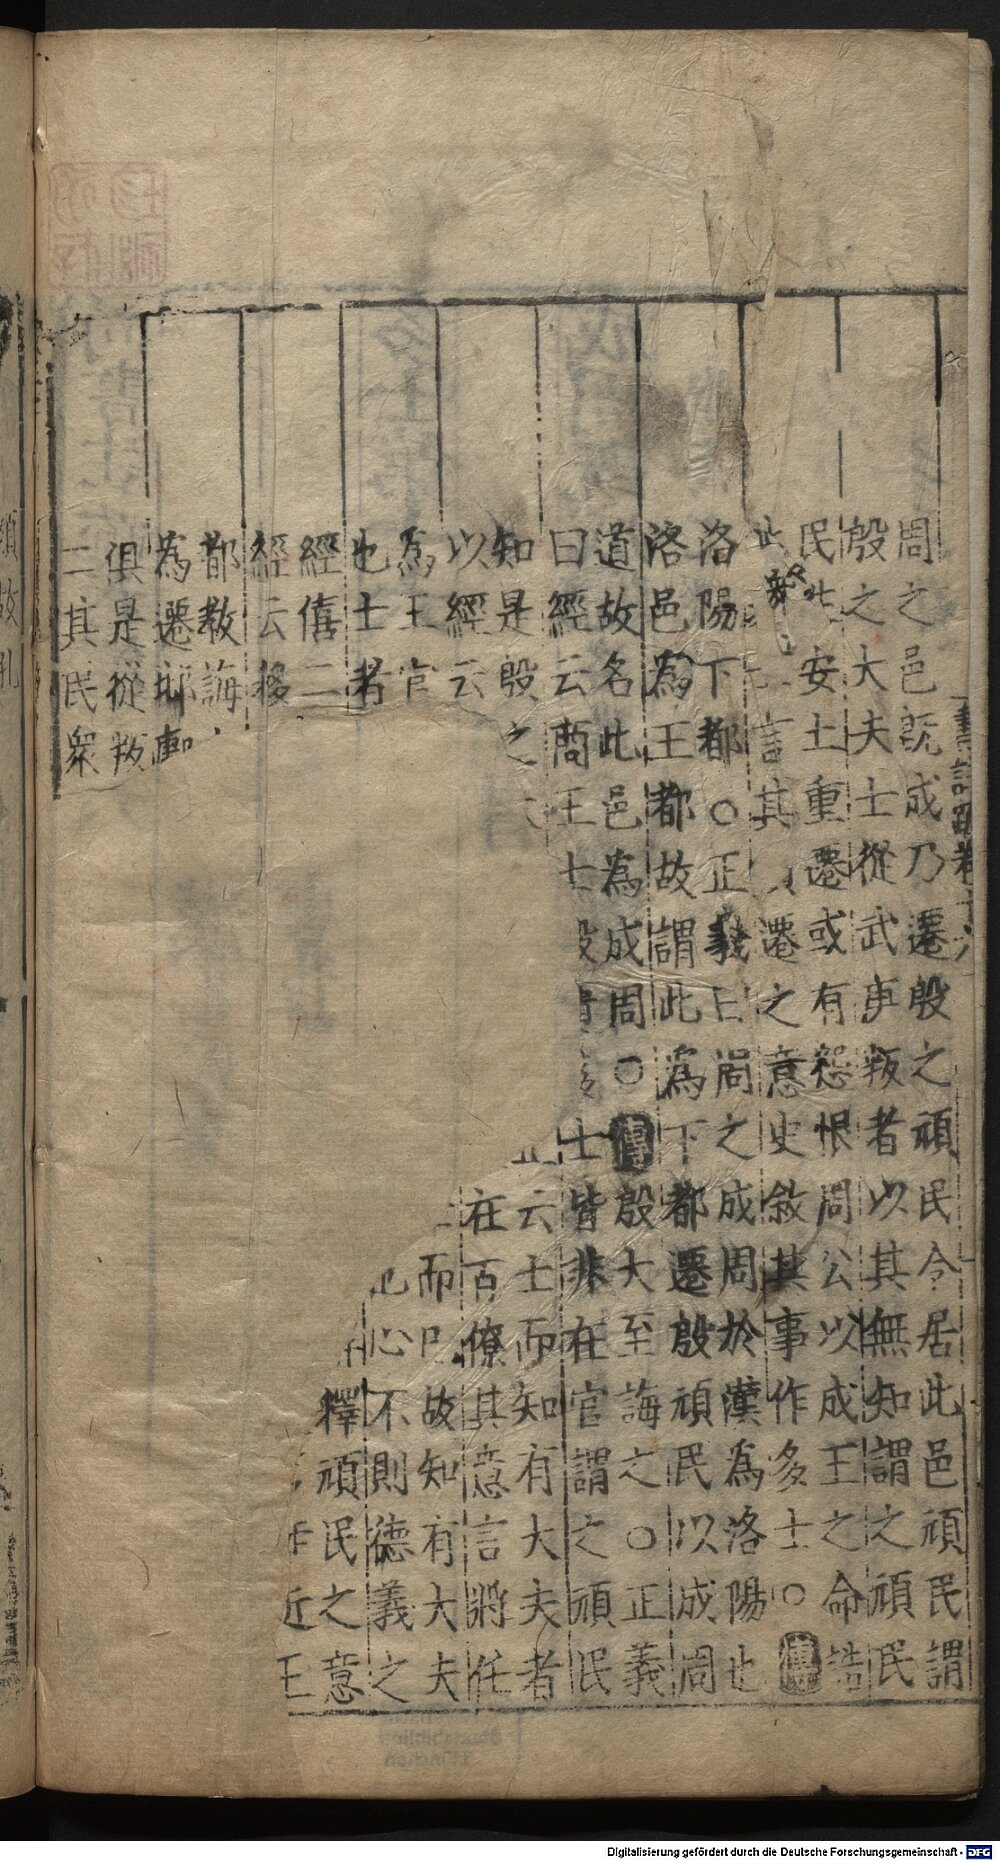 周之邑既成乃遷殷之頑民令居此邑頑民謂
殷之大夫士從武庚叛者以其無知謂之頑民
民 安土重遷或有怨恨周公以成王之命誥
此 言其 遷之意史敘其事作多士○傳
洛陽下都○正義曰周之成周於漢為洛陽也
洛邑為王都故謂此為下都遷殷頑民以成周
道故名此邑為成周○傳殷大至誨之○正義
曰經云商王士殷 士皆非在官謂之頑民
知是殷之大 云士而知有大夫者
以經云 在百僚其意言將任
為王官 而 故知有大夫
也士者 心不則德義之
經僖二 釋頑民之意
經云移 近王
都教誨
為遷邶鄘
俱是從叛
二其民眾
書註疏卷十六
頑故孔
Digitalisierung gefördert durch die Deutsche Forschungsgemeinschaft - DFG